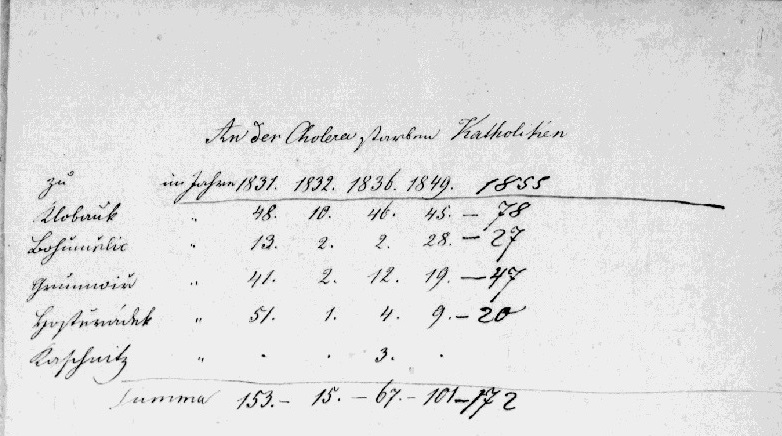 An der Cholera starben Katholiken
zu im Jahre 1831. 1832. 1836. 1849. 1855
Klobauk " 48. 10. 46. 45. – 78
Bohumělic " 13. 2. 2. 28. – 27
" 41. 2. 12. 19. – 47
Hosturádek " 51. 1. 4. 9. – 20
Kaschnitz " . . 3. .
Summa 153. – 15. – 67. – 101 – 172